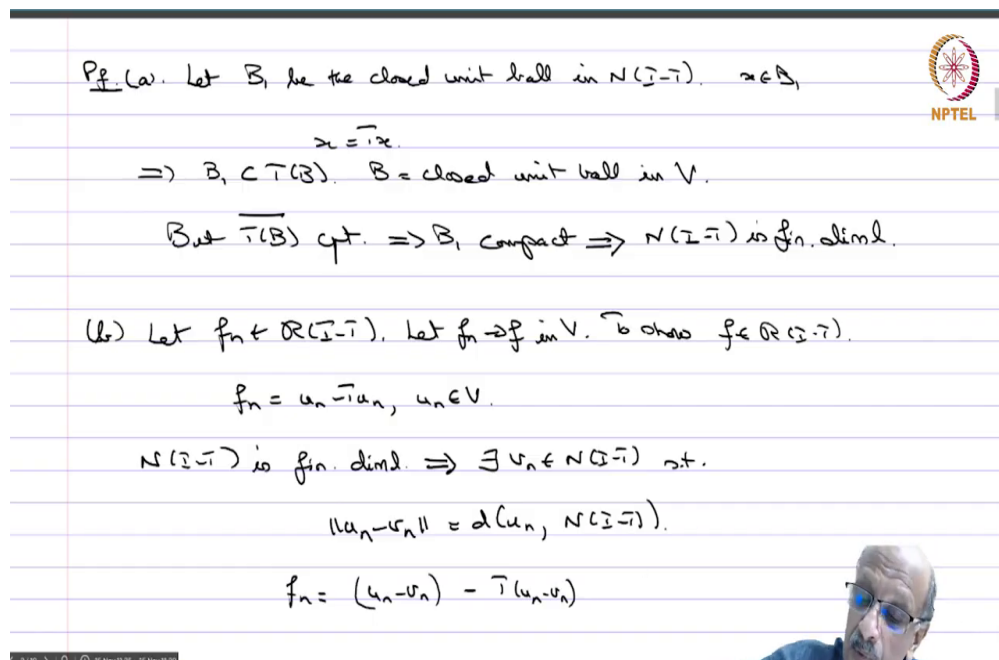 Pf. (a). Let B₁ be the closed unit ball in N(I-T). x ∈ B₁
NPTEL
x = Tx.
=> B₁ ⊂ T(B). B = closed unit ball in V.
But \overline{T(B)} cpt. => B₁ compact => N(I-T) is fin. diml.
(b) Let fₙ ∈ R(I-T). Let fₙ → f in V. To show f ∈ R(I-T).
fₙ = uₙ - Tuₙ, uₙ ∈ V.
N(I-T) is fin. diml. => ∃ vₙ ∈ N(I-T) s.t.
||uₙ - vₙ|| = d(uₙ, N(I-T)).
fₙ = (uₙ - vₙ) - T(uₙ - vₙ)